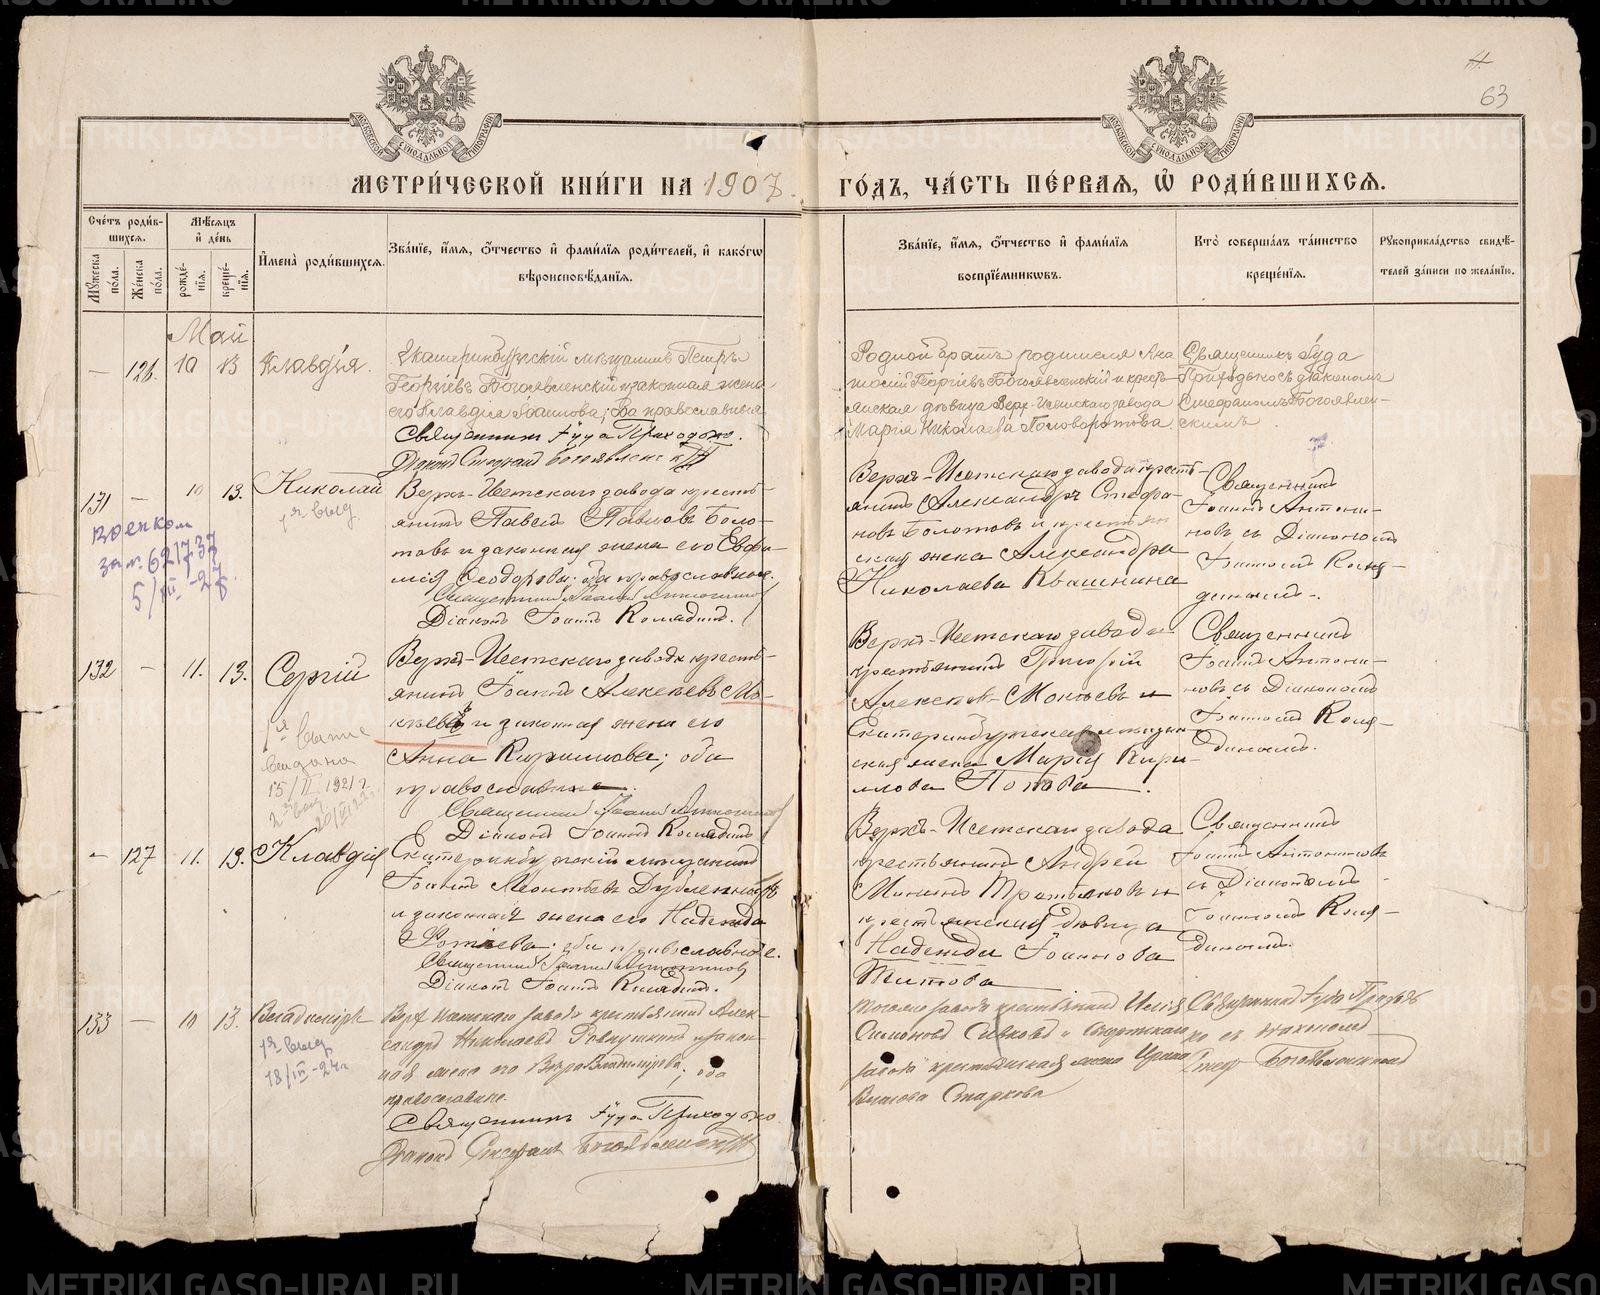 63
МЕТРИ́ЧЕСКОЙ КНИ́ГИ НА 1907
ГО́ДЪ, ЧА́СТЬ ПЕ́РВАЯ, Ѡ҆ РОДИ́ВШИХСЯ.
Сче́тъ роди́в-
шихся.
Мꙋ́жеска по́ла.
Же́нска по́ла.
Мѣ́сяцъ и҆ де́нь
рожде́-
нїя.
креще́-
нїя.
И҆мена̀ роди́вшихся.
Зва́нїе, и҆́мя, ѻ҆́тчество и҆ фами́лїя роди́телей, и҆ како́гѡ
вѣроисповѣ́данїя.
Зва́нїе, и҆́мя, ѻ҆́тчество и҆ фами́лїя
воспрїе́мникѡвъ.
Кто̀ соверша́лъ та́инство
креще́нїя.
Рꙋкоприкла́дство свидѣ́-
телей за́писи по жела́нїю.
Май
— 126. 10 13 Клавдія.
Екатеринбургскій мѣщанинъ Петръ
Георгіевъ Богоявленскій и законная жена
его Клавдія Іоаннова; Оба православные
Священникъ Іуда Приходько.
Діаконъ Стефанъ Богоявленскій
Родной братъ родителя Ана
толій Георгіевъ Богоявленскій и кресть-
янская дѣвица Верх-Исетскаго завода
Марія Николаева Половоротова
Священникъ Іуда
Приходько съ діакономъ
Стефаномъ Богоявлен-
скимъ
131 — 10 13. Николай
1я выд
военком
5/III-28
Верхъ-Исетскаго завода кресть-
янинъ Павелъ Павловъ Боло-
товъ и законная жена его Евфи-
мія Ѳеодорова: оба православные.
Священникъ Іоаннъ Антониновъ
Діаконъ Іоаннъ Колядинъ.
Верхъ-Исетскаго завода кресть-
янинъ Александръ Стефа-
новъ Болотовъ и крестьян
ская жена Александра
Николаева Квашнина
Священникъ
Іоаннъ Антони-
новъ съ Діакономъ
Іоанномъ Коля-
динымъ.
132 — 11. 13. Сергій
1я
выдана
15/II 1921 г.
Верхъ-Исетскаго завода кресть-
янинъ Іоаннъ Алексѣевъ Мо-
кѣевъ и законная жена его
Анна Кириллова; оба
православные.
Священникъ Іоаннъ Антониновъ
Діаконъ Іоаннъ Колядинъ
Верхъ-Исетскаго завода
крестьянинъ Григорій
Алексѣевъ Мокѣевъ и
Екатеринбургская мѣщан
ская жена Марія Кири-
ллова Попова.
Священникъ
Іоаннъ Антони-
новъ съ Діакономъ
Іоанномъ Коля-
динымъ.
— 127 11. 13. Клавдія
Екатеринбургскій мѣщанинъ
Іоаннъ Леонтьевъ
и законная жена его Надежда
Фотіева: оба православные.
Священникъ Іоаннъ Антониновъ
Діаконъ Іоаннъ Колядинъ.
Верхъ-Исетскаго завода
крестьянинъ Андрей
Мининъ Третьяковъ и
крестьянская дѣвица
Надежда Іоаннова
Титова
Священникъ
Іоаннъ Антониновъ
съ Діакономъ
Іоанномъ Коля-
динымъ.
133 — 10 13. Владиміръ
1я выд
18/III-24 г
Верх Исетскаго завода крестьянинъ Алек-
сандръ Николаевъ и закон-
ная жена его Вѣра Владимірова; оба
православные.
Священникъ Іуда Приходько
Діаконъ Стефанъ Богоявленскій
завода крестьянинъ Илія
Симоновъ Сивковъ и
завода крестьянская жена Ирина
Старкова
Священникъ Іуда Приходь
ко съ діакономъ
Стеф Богоявленскимъ
METRIKI.GASO-URAL.RU